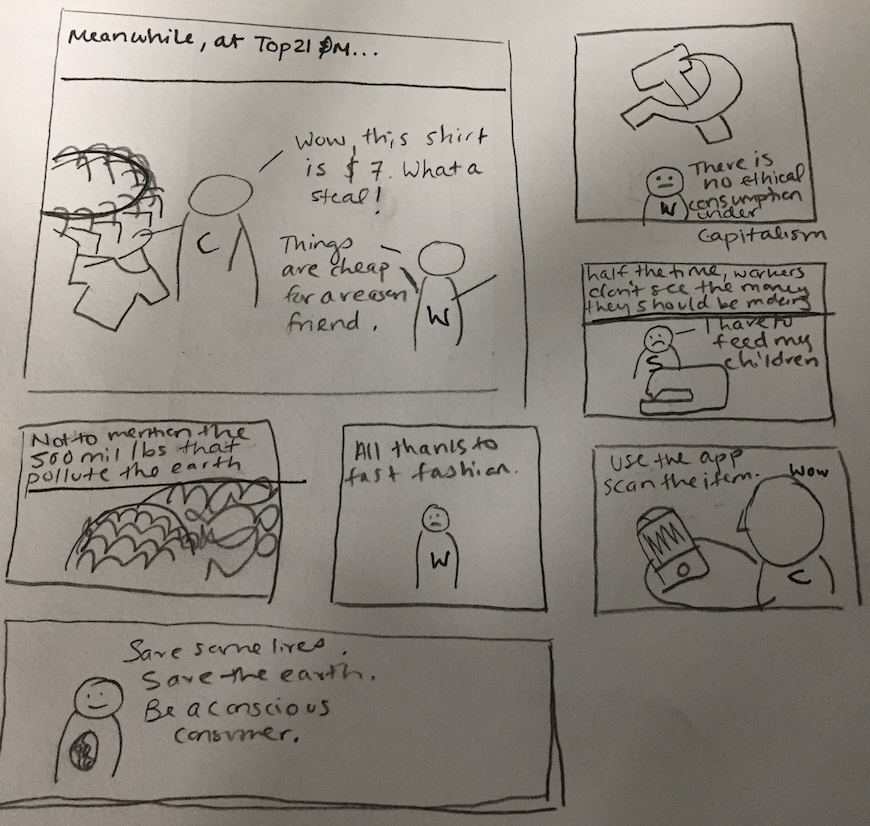 Meanwhile, at Top21 $M...
Wow, this shirt
is $7. What a
steal!
C
Things
are cheap
for a reason
friend.
W
There is
no ethical
consumption
under
Capitalism
W
half the time, workers
don't see the money
they should be making
I have to
feed my
children
S
Not to mention the
500 mil lbs that
pollute the earth
All thanks to
fast fashion.
W
Use the app
scan the item.
Wow
C
Save some lives.
Save the earth.
Be a conscious
consumer.